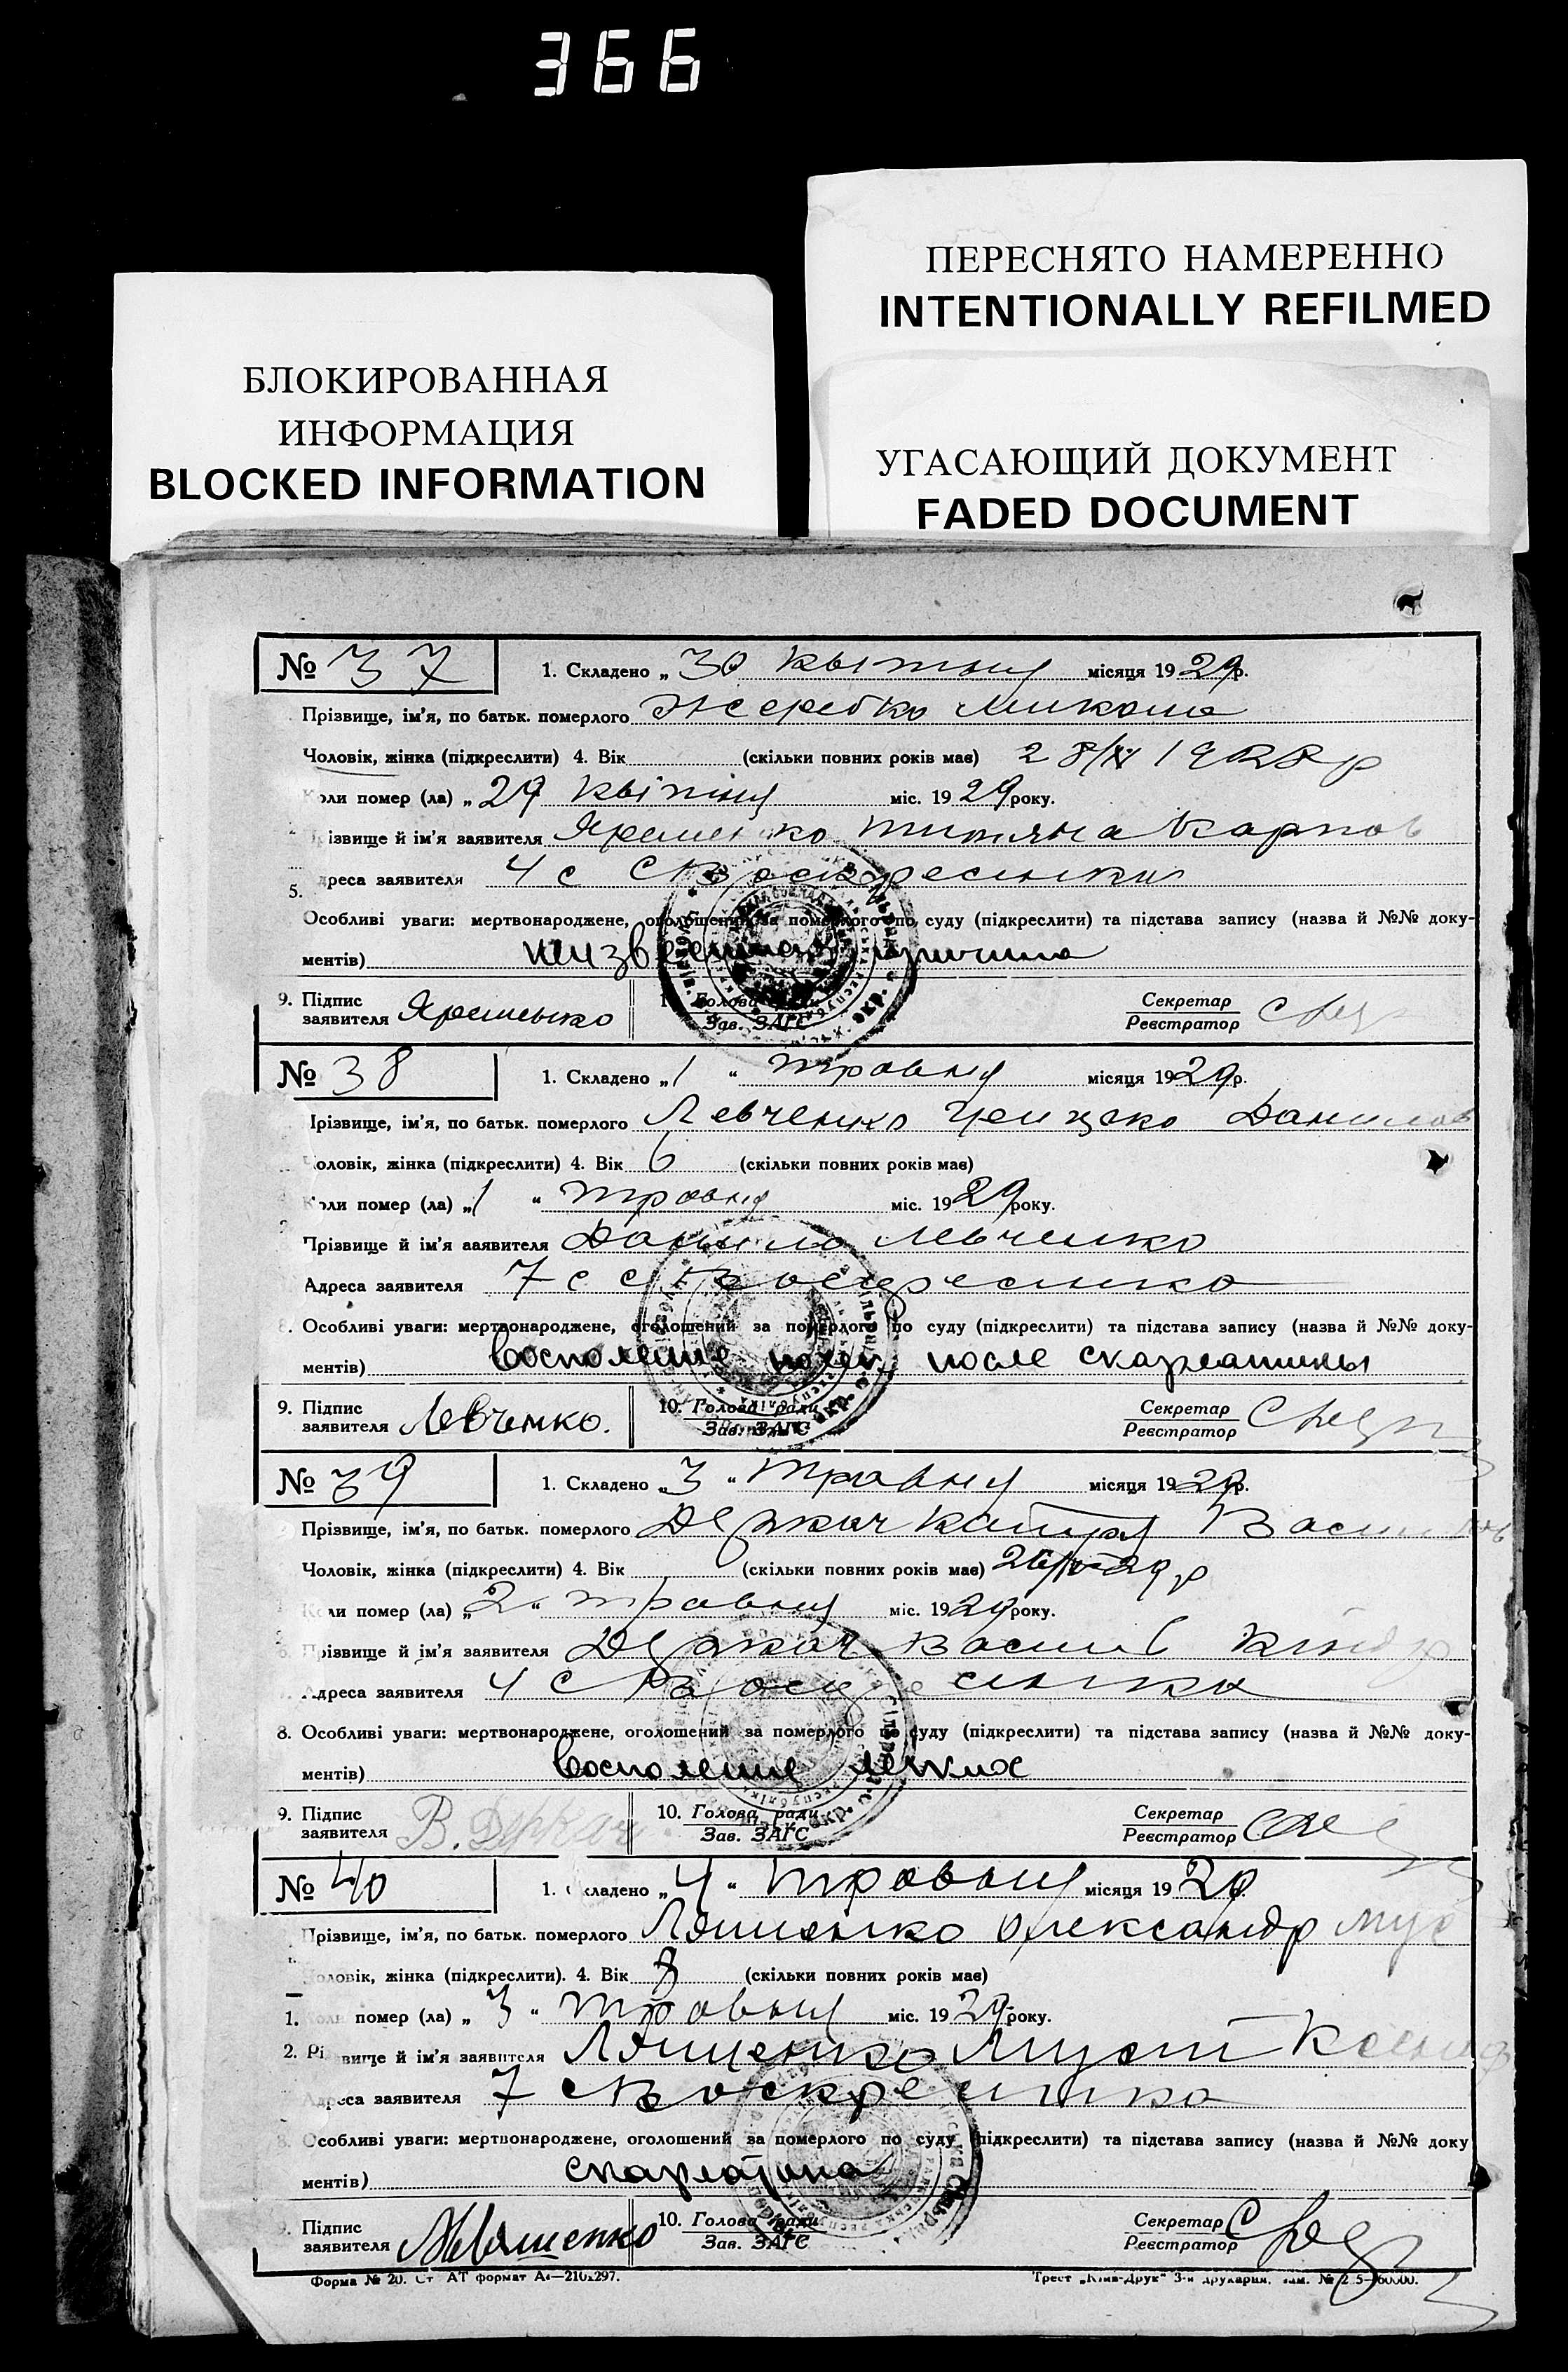 366
ПЕРЕСНЯТО НАМЕРЕННО
INTENTIONALLY REFILMED
БЛОКИРОВАННАЯ
ИНФОРМАЦИЯ
BLOCKED INFORMATION
УГАСАЮЩИЙ ДОКУМЕНТ
FADED DOCUMENT
№ 37 1. Складено „ 30 квітню місяця 1929р.
Прізвище, ім'я, по батьк. померлого Жеребко Микола
Чоловік, жінка (підкреслити) 4. Вік (скільки повних років має) 1928 р
Коли помер (ла) „ 29 квітню міс. 1929 року.
Прізвище й ім'я заявителя Яременко Карпов
5. Адреса заявителя 4 с Воскресенка
Особливі уваги: мертвонароджене, оголошений за померлого по суду (підкреслити) та підстава запису (назва й №№ доку-
ментів) причина
9. Підпис заявителя Яременко 10. Голова ради Зав. ЗАГС Секретар Реєстратор
№ 38 1. Складено „ 1 “ травню місяця 1929р.
Прізвище, ім'я, по батьк. померлого Левченко Данилов
Чоловік, жінка (підкреслити) 4. Вік 6 (скільки повних років має)
Коли помер (ла) „ 1 “ травню міс. 1929 року.
Прізвище й ім'я заявителя Данило Левченко
Адреса заявителя 7 с с Воскресенка
8. Особливі уваги: мертвонароджене, оголошений за померлого по суду (підкреслити) та підстава запису (назва й №№ доку-
ментів) восполение почек после скарлатины
9. Підпис заявителя Левченко. 10. Голова ради Зав. ЗАГС Секретар Реєстратор
№ 39 1. Складено „ 3 “ травню місяця 1929р.
Прізвище, ім'я, по батьк. померлого Деркач Катря Васил
Чоловік, жінка (підкреслити) 4. Вік (скільки повних років має) 29 р
Коли помер (ла) „ 2 “ травню міс. 1929 року.
Прізвище й ім'я заявителя Деркач Василь
Адреса заявителя 4 с Воскресенка
8. Особливі уваги: мертвонароджене, оголошений за померлого по суду (підкреслити) та підстава запису (назва й №№ доку-
ментів) восполение легких
9. Підпис заявителя В. Деркач 10. Голова ради Зав. ЗАГС Секретар Реєстратор
№ 40 1. Складено „ 4 “ травню місяця 1929
Прізвище, ім'я, по батьк. померлого Ляшенко Олександр Мус
Чоловік, жінка (підкреслити). 4. Вік 8 (скільки повних років має)
1. Коли помер (ла) „ 3 “ травню міс. 1929 року.
2. Прізвище й ім'я заявителя Ляшенко Мусій
Адреса заявителя 7 с Воскресенка
8. Особливі уваги: мертвонароджене, оголошений за померлого по суду (підкреслити) та підстава запису (назва й №№ доку
ментів) скарлатина
9. Підпис заявителя М Ляшенко 10. Голова ради Зав. ЗАГС Секретар Реєстратор
Форма № 20. Ст АТ формат А4—210x297. Трест „Київ-Друк“ 3-я друкарня.